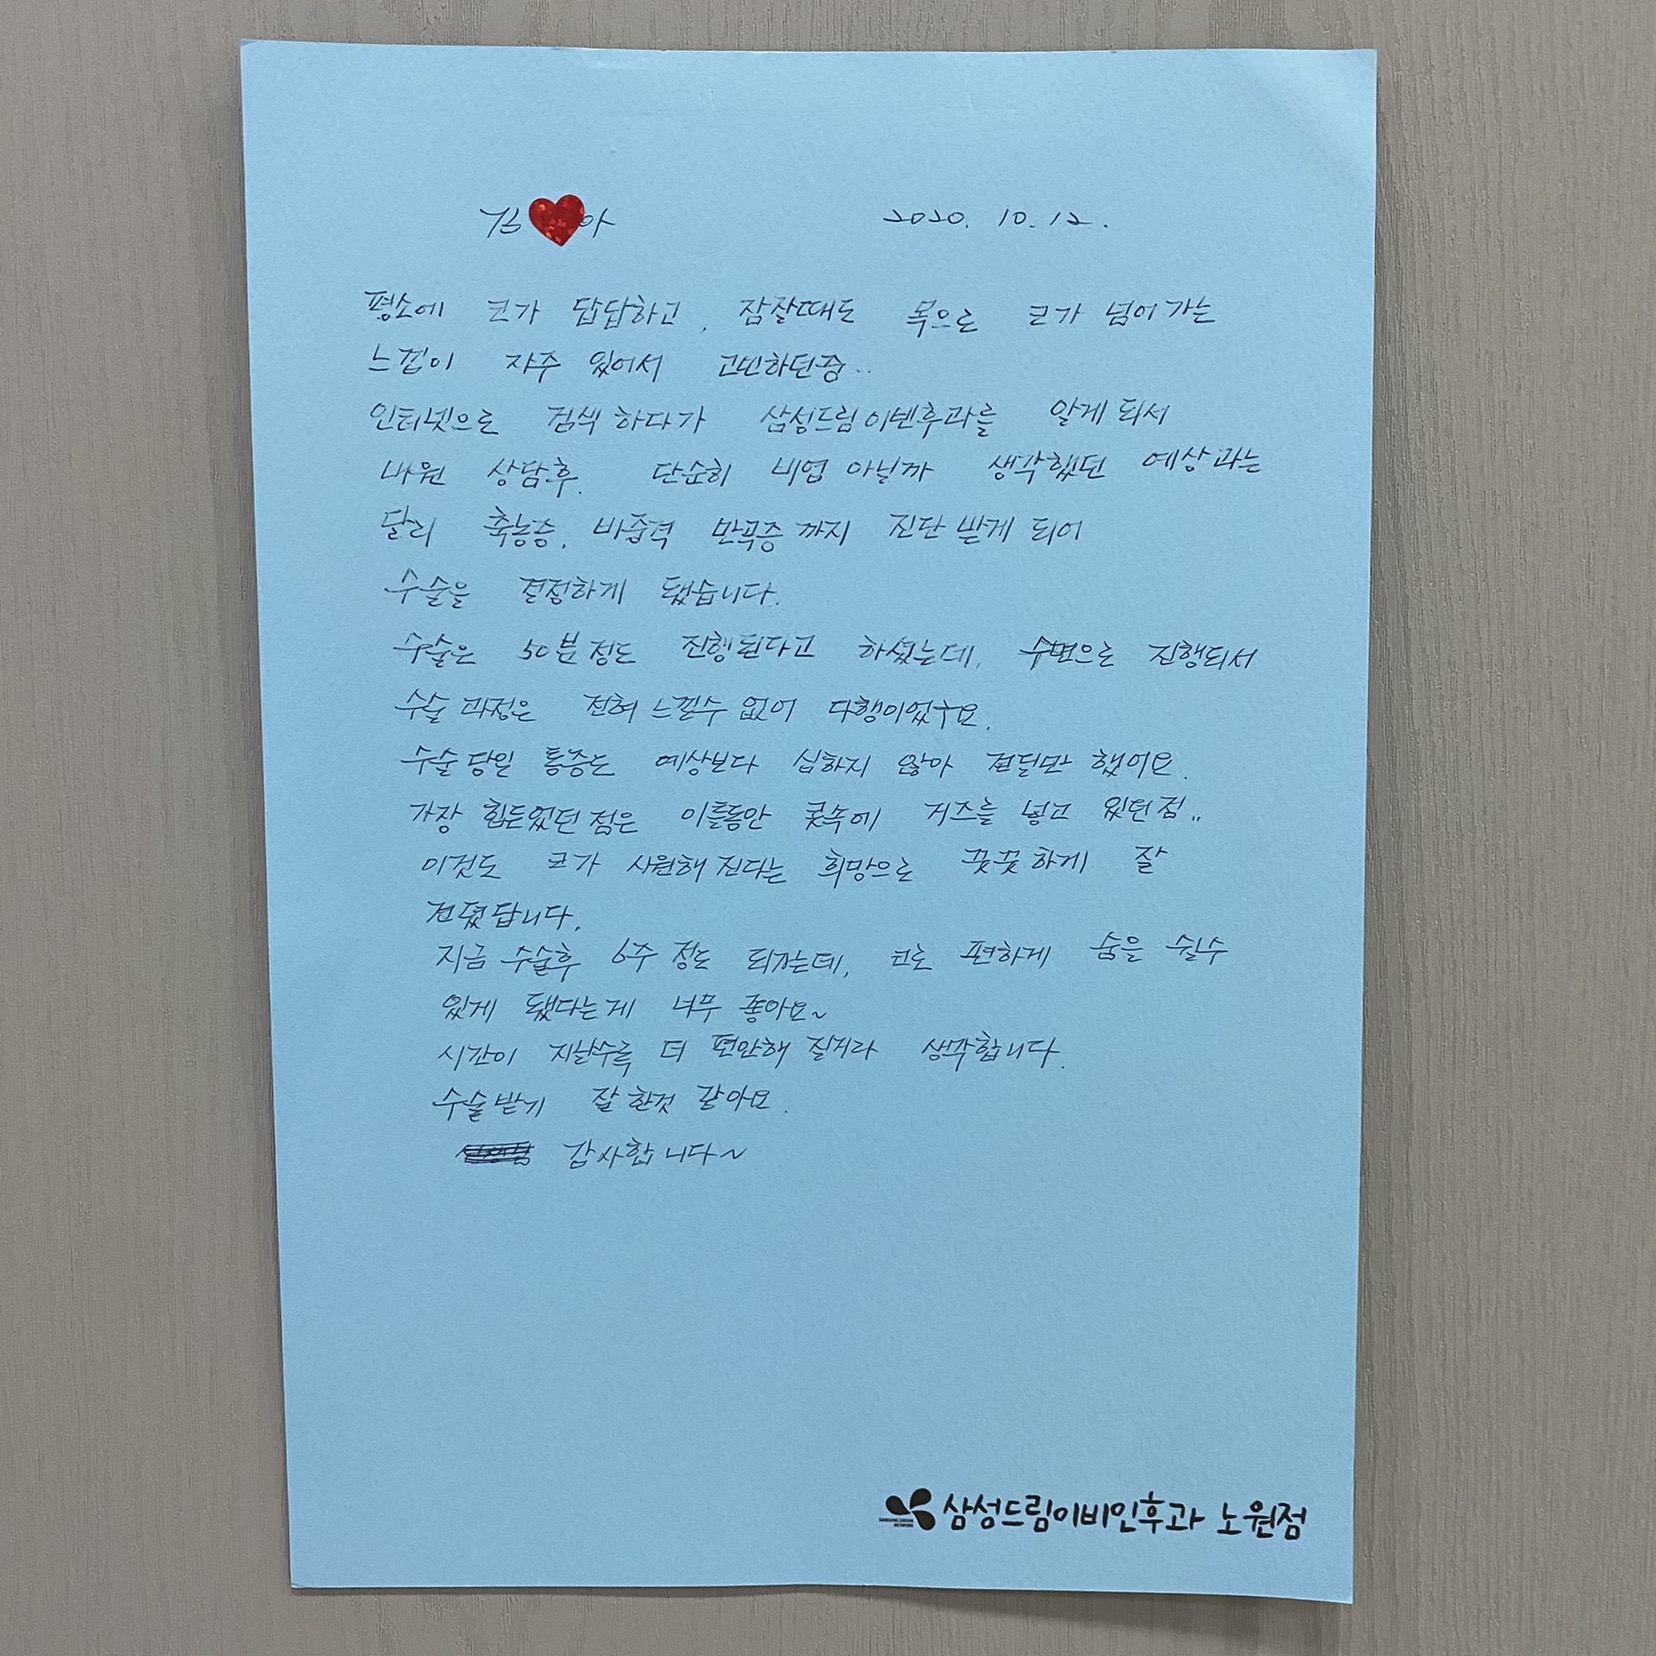 김 아 2020. 10. 12.
평소에 코가 답답하고, 잠잘때도 목으로 코가 넘어가는
느낌이 자주 있어서 고민하던중..
인터넷으로 검색하다가 삼성드림이빈후과를 알게되서
내원 상담후. 단순히 비염 아닐까 생각했던 예상과는
달리 축농증, 비중격 만곡증까지 진단받게 되어
수술을 결정하게 됐습니다.
수술은 50분정도 진행된다고 하셨는데, 수면으로 진행되서
수술 과정은 전혀 느낄수 없어 다행이었구요.
수술당일 통증도 예상보다 심하지 않아 견딜만 했어요.
가장 힘든었던점은 이틀동안 콧속에 거즈를 넣고 있던점..
이것도 코가 시원해진다는 희망으로 꿋꿋하게 잘
견뎠답니다.
지금 수술후 6주 정도 되가는데, 코로 편하게 숨을 쉴수
있게 됐다는게 너무 좋아요~
시간이 지날수록 더 편안해 질거라 생각합니다.
수술받기 잘한것 같아요.
감사합니다~
SAMSUNG DREAM
NETWORK
삼성드림이비인후과 노원점